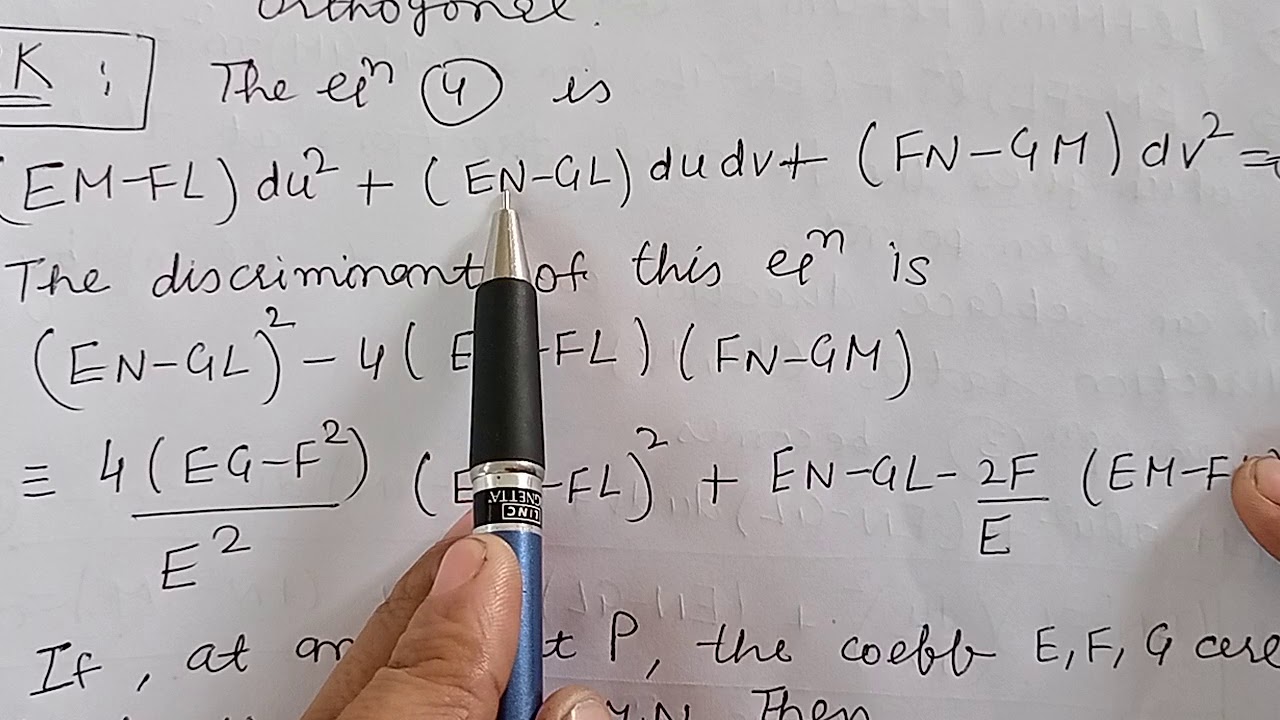 orthogonal.
K :
The eqⁿ ④ is
(EM-FL) du² + (EN-GL) du dv + (FN-GM) dv² =
The discriminant of this eqⁿ is
(EN-GL)² - 4( E -FL) (FN-GM)
≡ 4(EG-F²)/E² (E -FL)² + EN-GL- 2F/E (EM-F
LINC
If, at P, the coeff E, F, G are
Then